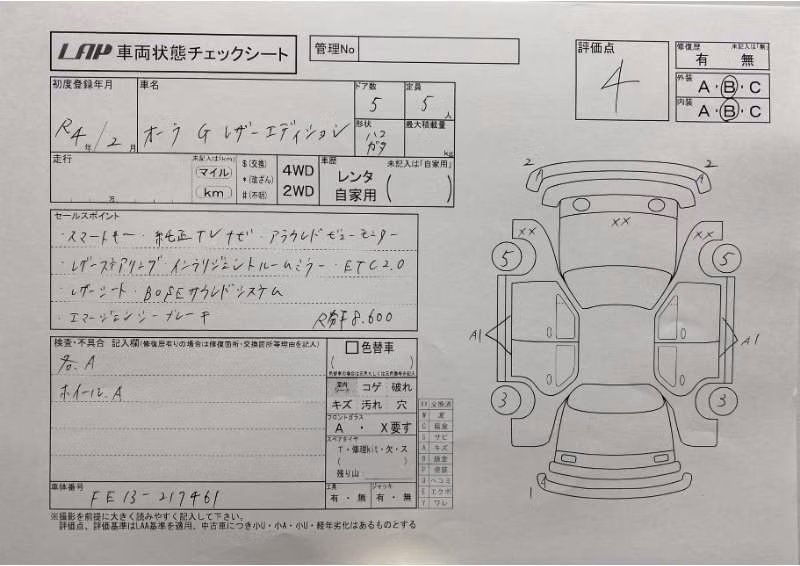 LAP 車両状態チェックシート
管理No
評価点
4
修復歴 未記入は「無」
有 無
外装 A・B・C
内装 A・B・C
初度登録年月
R4年/2月
車名
オーラ G レザーエディション
ドア数
5
定員
5人
形状
ハコ
ガタ
最大積載量
kg
走行
未記入は「km」
マイル
km
万
$(交換)
*(改ざん)
#(不明)
4WD
2WD
車歴 未記入は「自家用」
レンタ
自家用
セールスポイント
・スマートキー・純正TVナビ・アラウンドビューモニター
・レザーステアリング・インテリジェントルームミラー・ETC2.0
・レザーシート・BOSEサウンドシステム
・エマージェンシーブレーキ
8.600
検査・不具合 記入欄(修復歴有りの場合は修復箇所・交換箇所等理由を記入)
各.A
ホイール.A
色替車
室内
コゲ 破れ
キズ 汚れ 穴
フロントガラス
A ・ X要す
スペアタイヤ
T・修理kit・欠・ス
残り山
工具
有・無
ジャッキ
有・無
XX 交換済
W 波
C 腐食
S サビ
A キズ
P 塗装
U ヘコミ
E エクボ
Y ワレ
車体番号
FE13-217461
※撮影を前提に大きく読みやすく記入して下さい。
評価点、評価基準はLAA基準を適用、中古車につき小U・小A・小U・経年劣化はあるものとする
2
2
A
XX
XX
XX
5
5
A1
A1
3
3
1